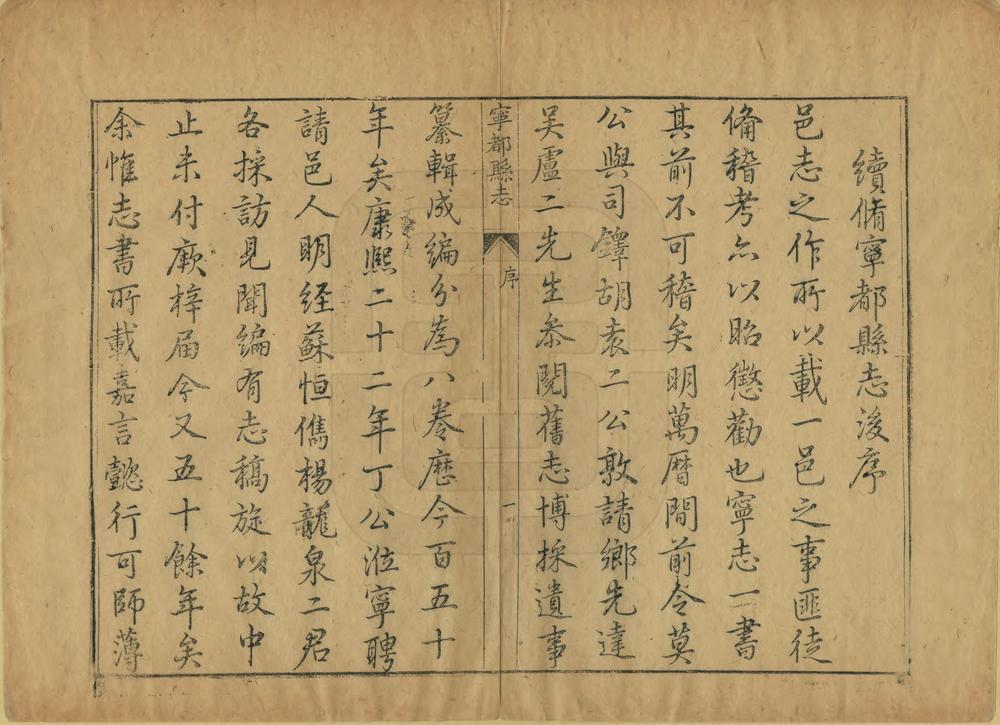 續脩寧都縣志後序
邑志之作所以載一邑之事匪徒
備稽考亦以昭懲勸也寧志一書
其前不可稽矣明萬曆間前令莫
公與司鐸胡袁二公敦請鄉先達
吴盧二先生叅閱舊志博採遺事
寧都縣志
序
一
纂輯成編分為八卷歷今百五十
年矣康熙二十二年丁公涖寧聘
請邑人明经蘇恒儁楊龍泉二君
各採訪見聞編有志稿旋以故中
止未付厥梓届今又五十餘年矣
余惟志書所載嘉言懿行可師薄